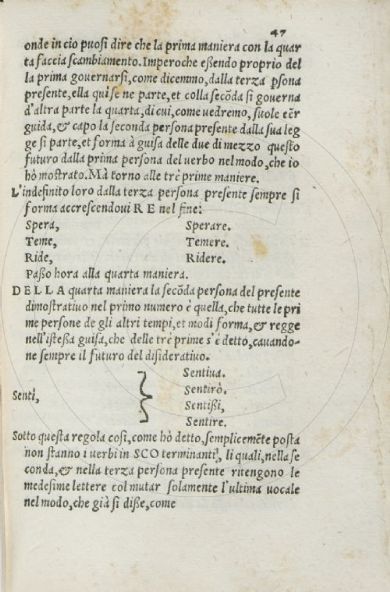 47
onde in cio puosi dire che la prima maniera con la quar
ta faccia scambiamento. Imperoche eßendo proprio del
la prima governarsi, come dicemmo, dalla terza psona
presente, ella qui se ne parte, et colla secōda si governa
d'altra parte la quarta, di cui, come uedremo, suole eēr
guida, & capo la seconda persona presente dalla sua leg
ge si parte, et forma à guisa delle due di mezzo questo
futuro dalla prima persona del verbo nel modo, che io
hò mostrato. Mà torno alle trè prime maniere.
L'indefinito loro dalla terza persona presente sempre si
forma accrescendoui RE nel fine:
Spera, Sperare.
Teme, Temere.
Ride, Ridere.
Paßo hora alla quarta maniera.
DELLA quarta maniera la secōda persona del presente
dimostratiuo nel primo numero è quella, che tutte le pri
me persone de gli altri tempi, et modi forma, & regge
nell'isteßa guisa, che delle trè prime s'è detto, cauando-
ne sempre il futuro del disiderativo.
Sentiua.
Sentirò.
Senti,
Sentißi,
Sentire.
Sotto questa regola così, come hò detto, semplicemēte posta
non stanno i uerbi in SCO terminanti, li quali, nella se
conda, & nella terza persona presente ritengono le
medesime lettere col mutar solamente l'ultima uocale
nel modo, che già si diße, come